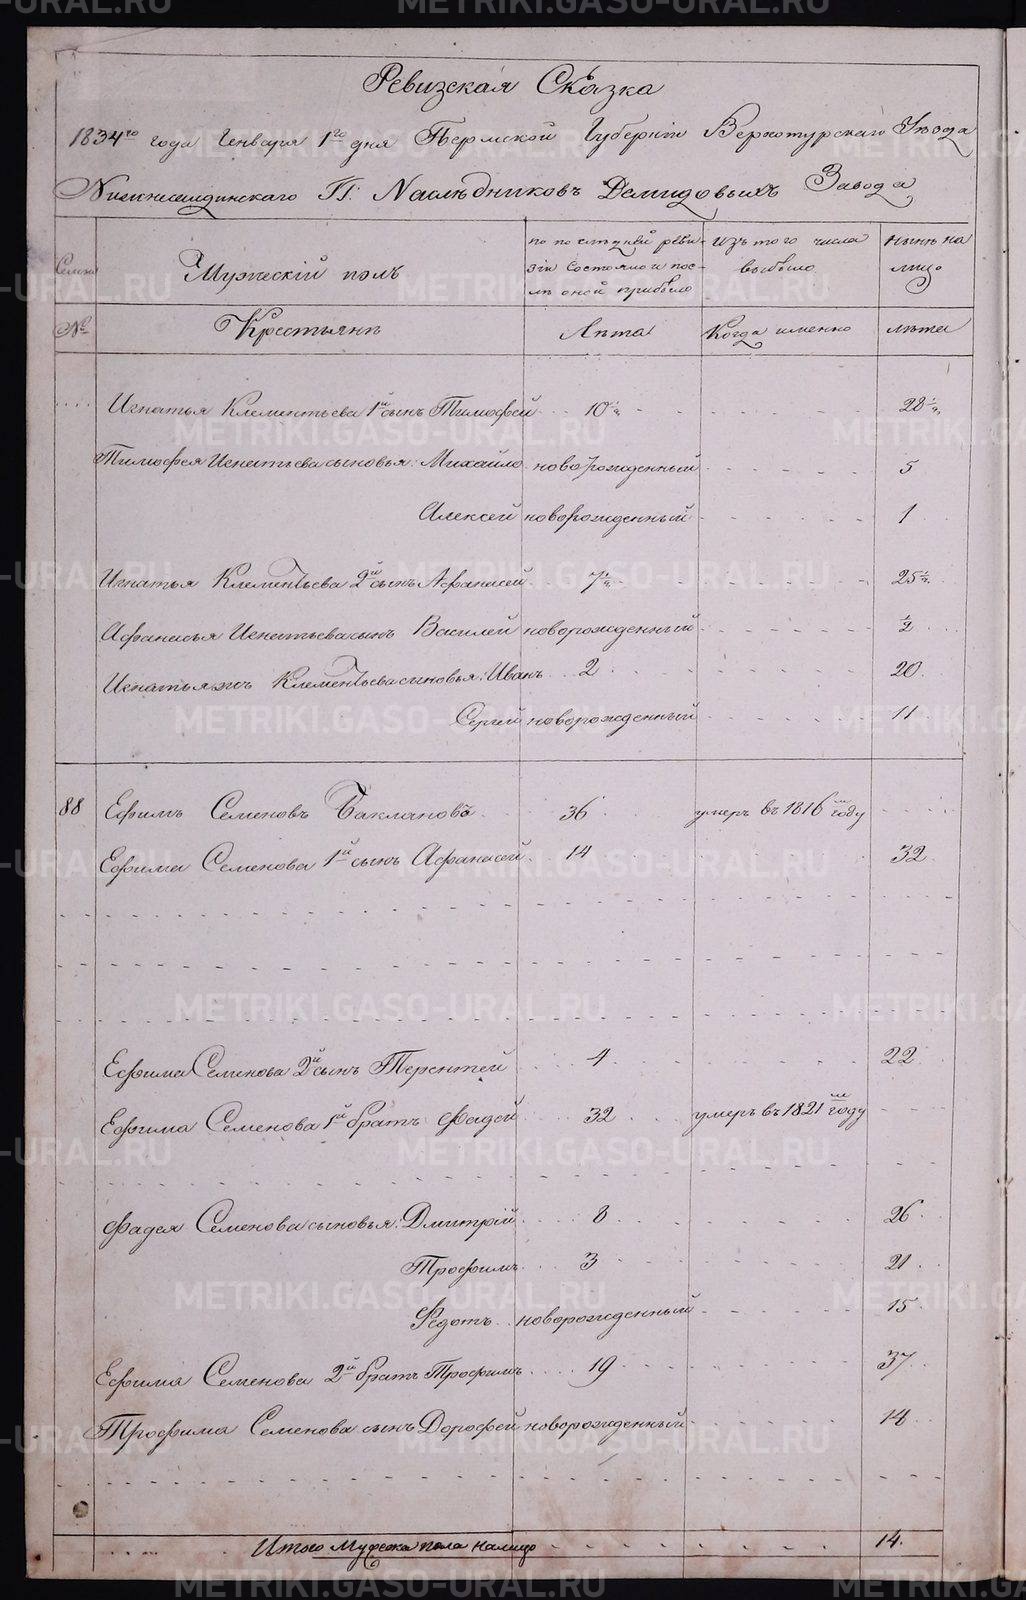 Ревизская Сказка
1834го года Генваря 1го дня Пермской Губернiи Верхотурскаго Уѣзда
Нижнесалдинскаго Гг: Наслѣдниковъ Демидовыхъ Завода
Семьи
Мужескiй полъ
по послѣдней реви-
зiи состояло и пос-
лѣ оной прибыло
изъ того числа
выбыло
нынѣ на
лицо
№
Крестьянѣ
Лѣта
Когда именно
лѣта
Игнатья Клементьева 1й сынъ Тимофей 10½ 28½
Тимофея Игнатьева сыновья: Михайло новорожденный 5
Алексей новорожденный 1
Игнатья Клементьева 2й сынъ Афанасей 7½ 25½
Афанасья Игнатьева сынъ Василей новорожденный ½
Игнатья жъ Клементьева сыновья: Иванъ 2 20
Сергей новорожденный 11
88 Ефимъ Семеновъ Баклановъ 36 умеръ въ 1816м году
Ефима Семенова 1й сынъ Афанасей 14 32
Ефима Семенова 2й сынъ Терентей 4 22
Ефима Семенова 1й братъ Фадей 32 умеръ въ 1821м году
Фадея Семенова сыновья: Дмитрiй 8 26
Трофимъ 3 21
Федотъ новорожденный 15
Ефима Семенова 2й братъ Трофимъ 19 37
Трофима Семенова сынъ Дорофей новорожденный 14
Итого Мужска пола налицо 14.
METRIKI.GASO-URAL.RU